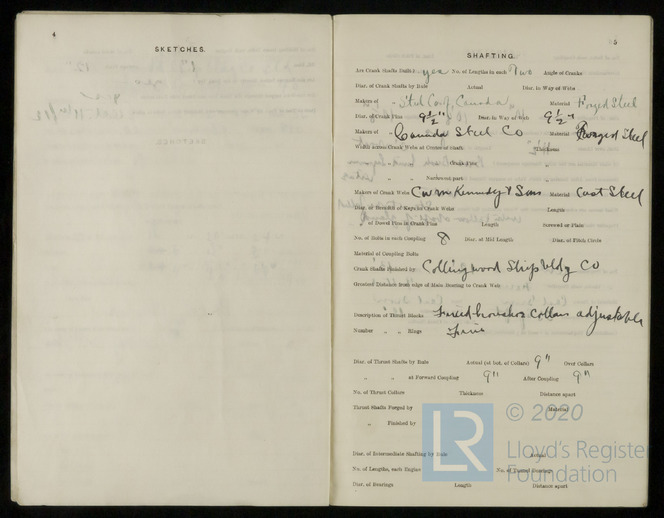 4
SKETCHES.
5
SHAFTING.
Are Crank Shafts Built? yes No. of Lengths in each Two Angle of Cranks
Diar. of Crank Shafts by Rule Actual Diar. in Way of Webs
Makers of " Steel Corp, Canada Material Forged Steel
Diar. of Crank Pins 9½" Diar. in Way of Web 9½"
Makers of " Canada Steel Co Material Forged Steel
Width across Crank Webs at Centre of Shaft Thickness
" " Crank Pins "
" " Narrowest part "
Makers of Crank Webs Cwm Kennedy & Sons Material Cast Steel
Diar. or Breadth of Keys in Crank Webs Length
" of Dowel Pins in Crank Pins Length Screwed or Plain
No. of Bolts in each Coupling 8 Diar. at Mid Length Diar. of Pitch Circle
Material of Coupling Bolts
Crank Shafts Finished by Collingwood Shipbldg Co
Greatest Distance from edge of Main Bearing to Crank Web
Description of Thrust Blocks collars adjustable
Number " " Rings
Diar. of Thrust Shafts by Rule Actual (at bot. of Collars) 9" Over Collars
" " at Forward Coupling 9" After Coupling 9"
No. of Thrust Collars Thickness Distance apart
Thrust Shafts Forged by Material
" Finished by
Diar. of Intermediate Shafting by Rule Actual
No. of Lengths, each Engine No. of Tunnel Bearings
Diar. of Bearings Length Distance apart
LR
© 2020
Lloyd's Register
Foundation